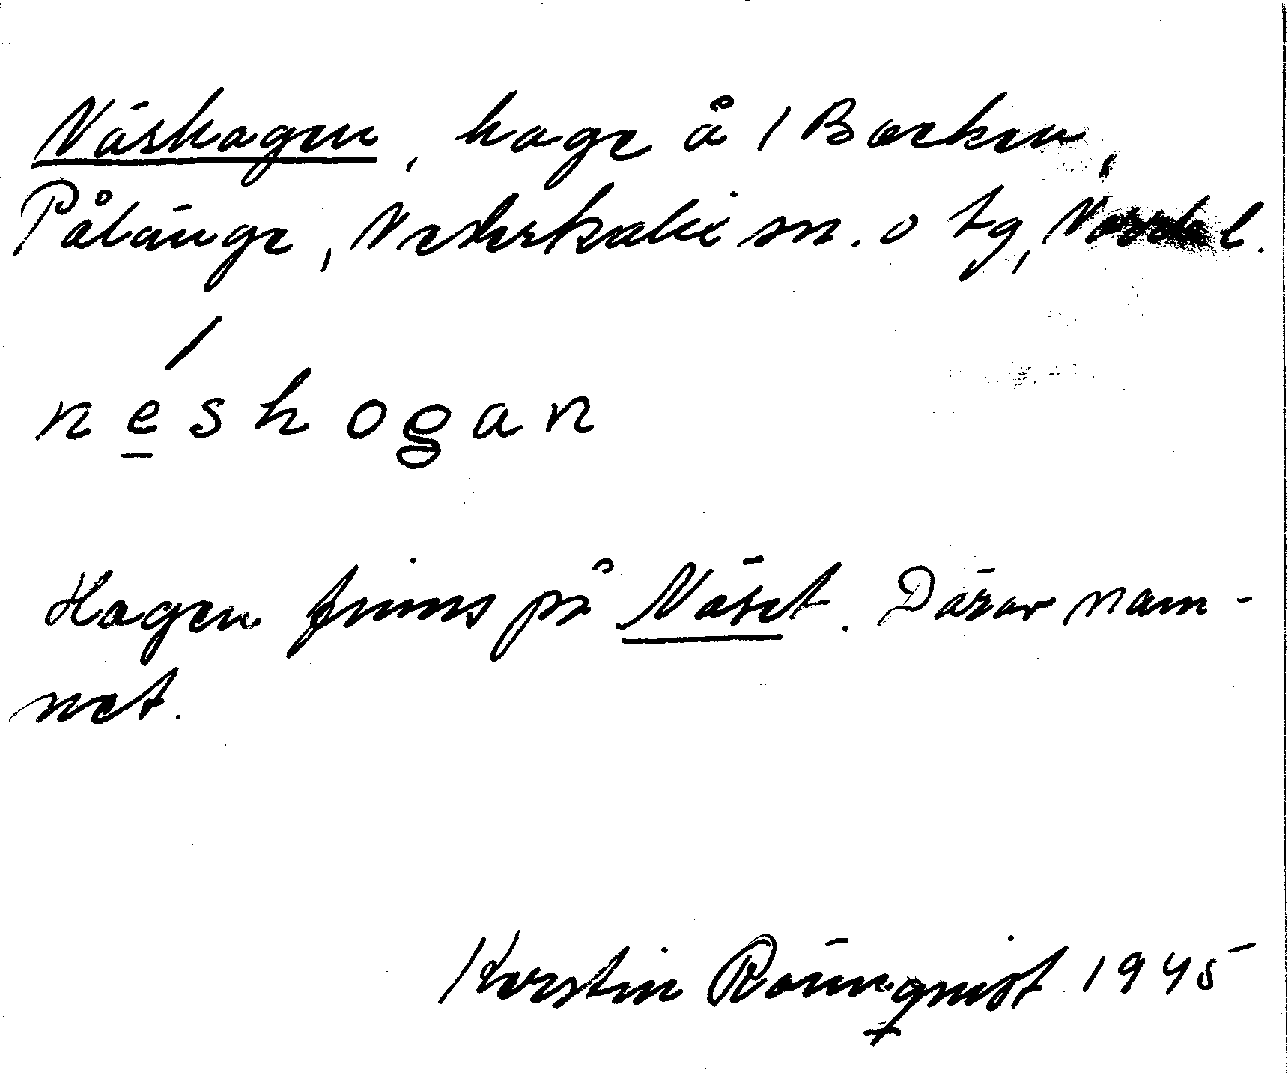 Näshagen, hage å 1 Backen,
Pålänge, Nederkalix sn. o tg, Nordal.
néshogan
Hagen finns på Näset. Därav nam-
net.
Kerstin Rönnqvist 1945